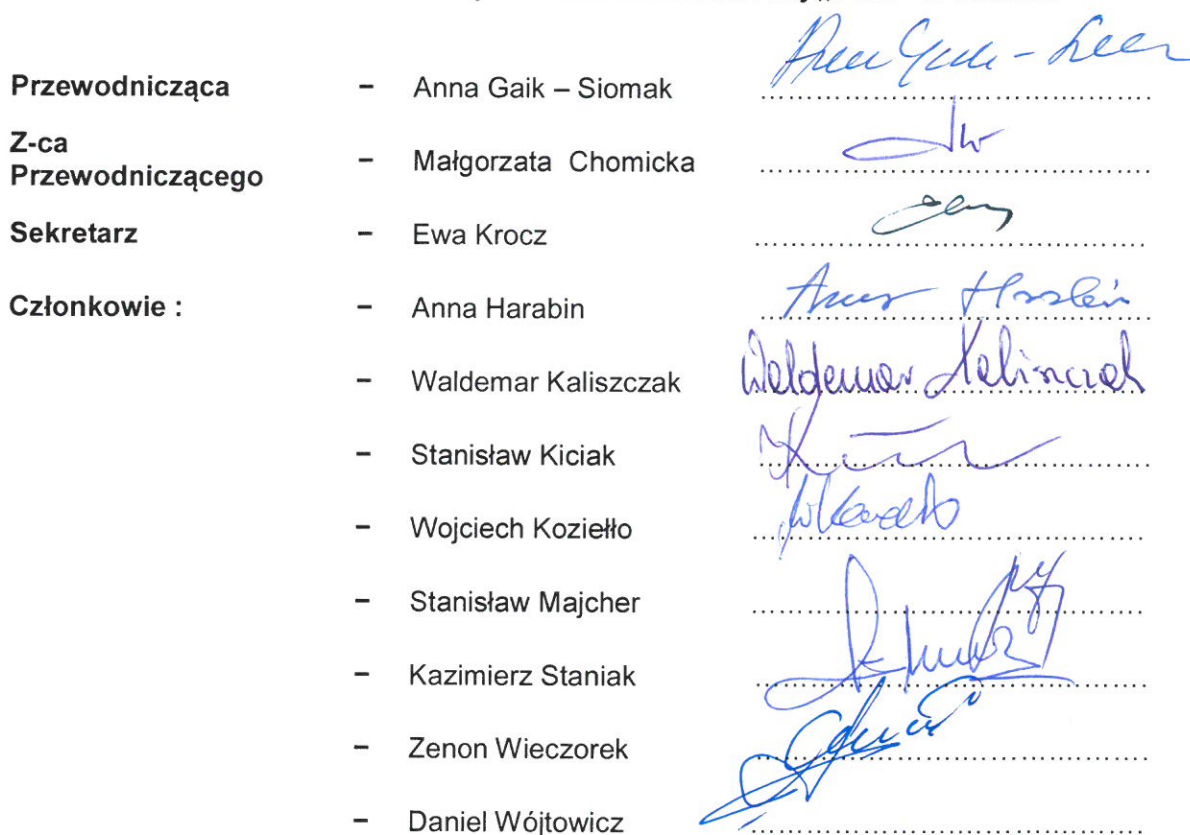 Przewodnicząca – Anna Gaik – Siomak
Z-ca
Przewodniczącego – Małgorzata Chomicka
Sekretarz – Ewa Krocz
Członkowie : – Anna Harabin
– Waldemar Kaliszczak Waldemar Kaliszczak
– Stanisław Kiciak
– Wojciech Koziełło
– Stanisław Majcher
– Kazimierz Staniak
– Zenon Wieczorek
– Daniel Wójtowicz